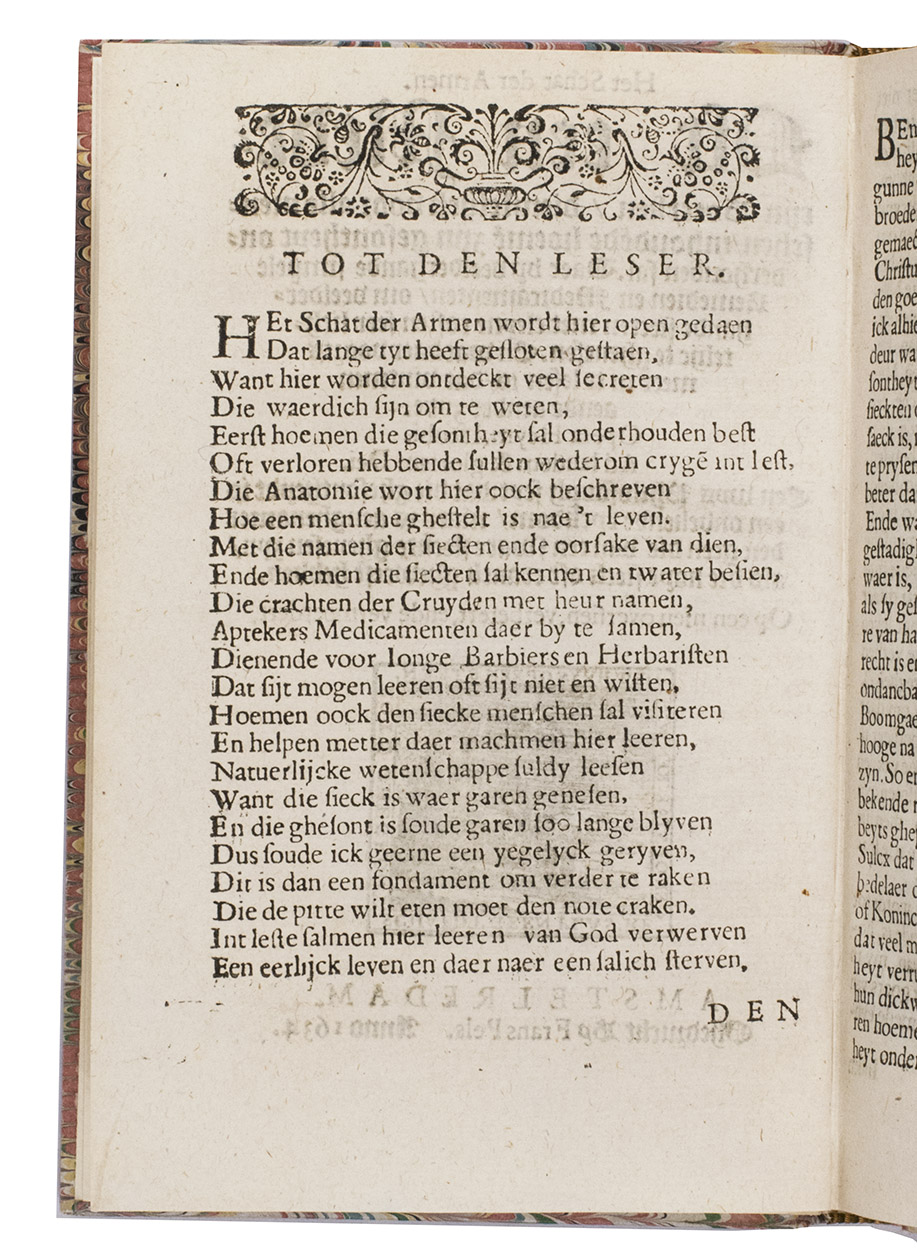 TOT DEN LESER.
HEt Schat der Armen wordt hier open gedaen
Dat lange tyt heeft gesloten gestaen,
Want hier worden ontdeckt veel secreten
Die waerdich sijn om te weten,
Eerst hoemen die gesontheyt sal onderhouden best
Oft verloren hebbende sullen wederom crygē int lest,
Die Anatomie wort hier oock beschreven
Hoe een mensche ghestelt is nae 't leven.
Met die namen der siecten ende oorsake van dien,
Ende hoemen die siecten sal kennen en twater besien,
Die crachten der Cruyden met heur namen,
Aptekers Medicamenten daer by te samen,
Dienende voor Ionge Barbiers en Herbaristen
Dat sijt mogen leeren oft sijt niet en wisten,
Hoemen oock den siecke menschen sal visiteren
En helpen metter daet machmen hier leeren,
Natuerlijcke wetenschappe suldy leesen
Want die sieck is waer garen genesen,
En die ghesont is soude garen soo lange blyven
Dus soude ick geerne een yegelyck geryven,
Dit is dan een fondament om verder te raken
Die de pitte wilt eten moet den note craken.
Int leste salmen hier leeren van God verwerven
Een eerlijck leven en daer naer een salich sterven,
DEN
BEn
hey
gunne
broede
gemaec
Christu
den goe
ick alhie
deur wa
sontheyt
sieckten
saeck is,
te prysen
beter da
Ende wa
gestadig
waer is,
als sy ges
re van ha
recht is e
ondancba
Boomgae
hooge na
zyn. So e
bekende
beyts ghe
Sulcx dat
bedelaer
of Koninc
dat veel m
heyt verr
hun dickw
ren hoeme
heyt onde